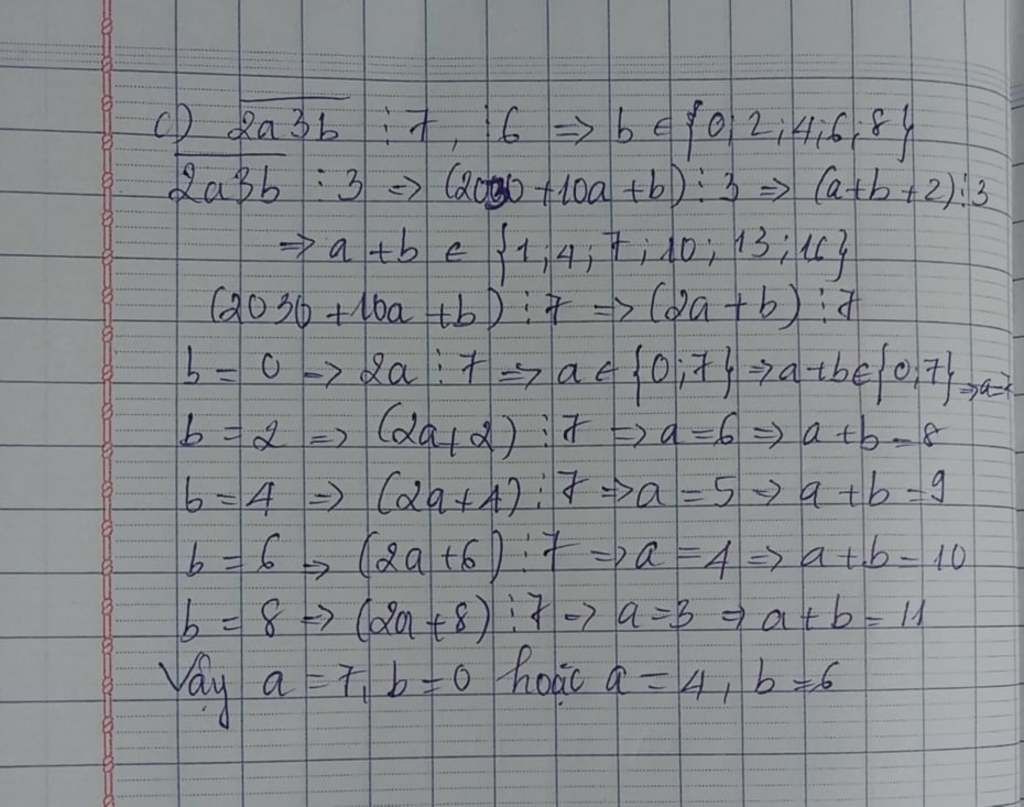 c) 2a3b ⋮ 7, ⋮ 6 ⇒ b ∈ {0; 2; 4; 6; 8}
2a3b ⋮ 3 ⇒ (2030 + 10a + b) ⋮ 3 ⇒ (a + b + 2) ⋮ 3
⇒ a + b ∈ {1; 4; 7; 10; 13; 16}
(2030 + 10a + b) ⋮ 7 ⇒ (2a + b) ⋮ 7
b = 0 ⇒ 2a ⋮ 7 ⇒ a ∈ {0; 7} ⇒ a + b ∈ {0; 7} ⇒ a = 7
b = 2 ⇒ (2a + 2) ⋮ 7 ⇒ a = 6 ⇒ a + b = 8
b = 4 ⇒ (2a + 4) ⋮ 7 ⇒ a = 5 ⇒ a + b = 9
b = 6 ⇒ (2a + 6) ⋮ 7 ⇒ a = 4 ⇒ a + b = 10
b = 8 ⇒ (2a + 8) ⋮ 7 ⇒ a = 3 ⇒ a + b = 11
Vậy a = 7, b = 0 hoặc a = 4, b = 6